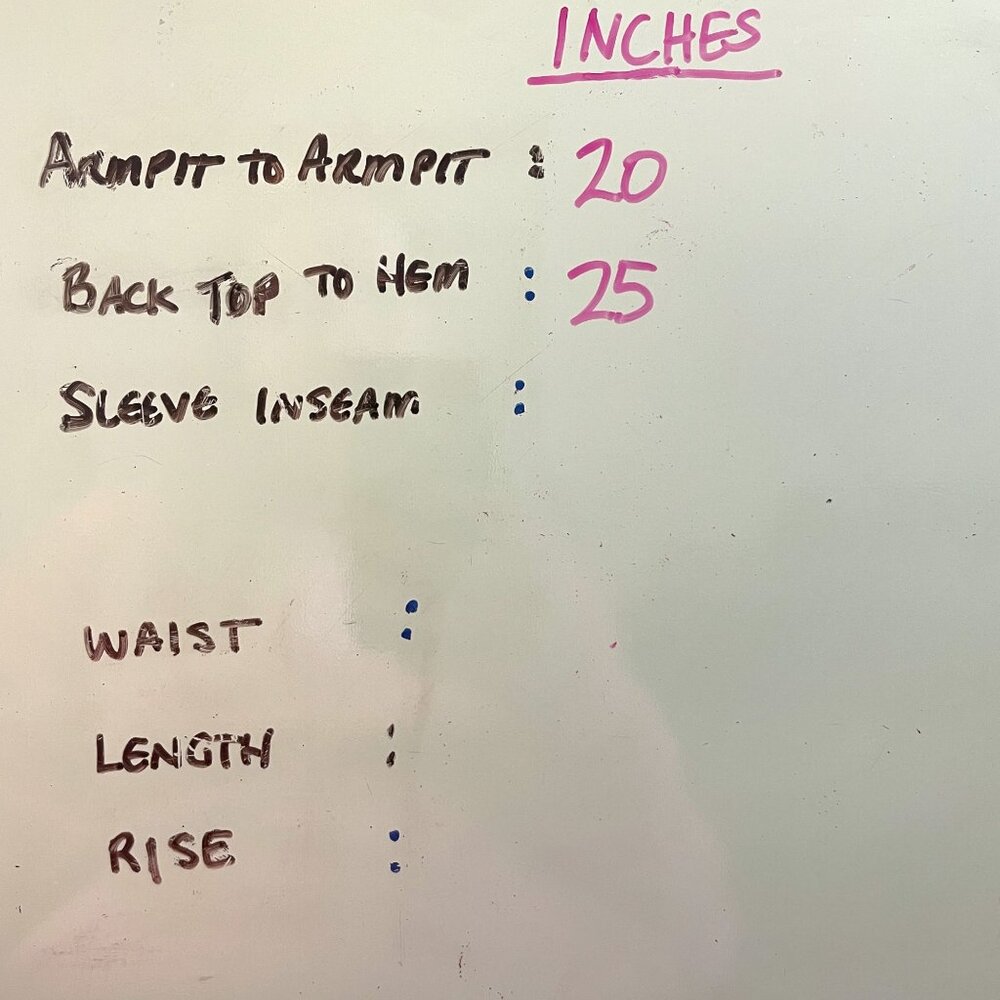 INCHES
ARMPIT TO ARMPIT : 20
BACK TOP TO HEM : 25
SLEEVE INSEAM :
WAIST :
LENGTH :
RISE :